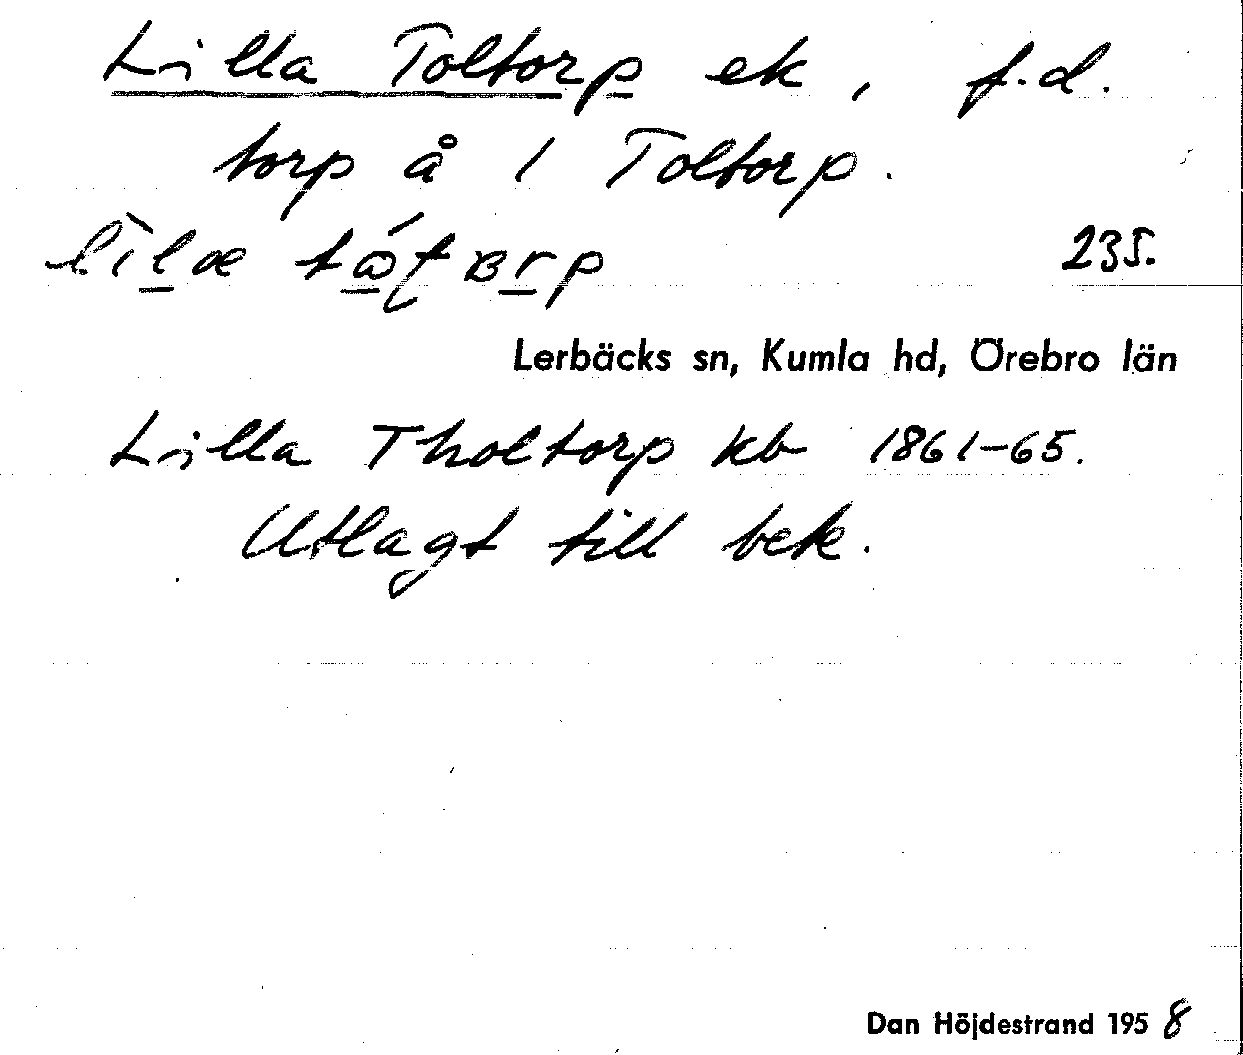 Lilla Toltorp ek, f.d.
torp å 1 Toltorp.
235.
Lerbäcks sn, Kumla hd, Örebro län
Lilla Tholtorp kb 1861-65.
Utlagt till bete.
Dan Höjdestrand 1958